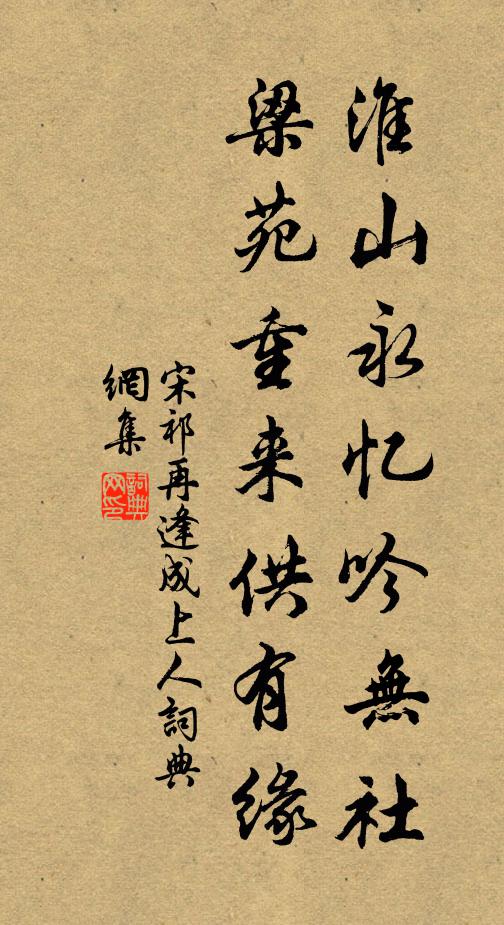 淮山永忆吟無社
梁苑重来供有缘
宋祁再逢成上人詞典
網集
詞典網印